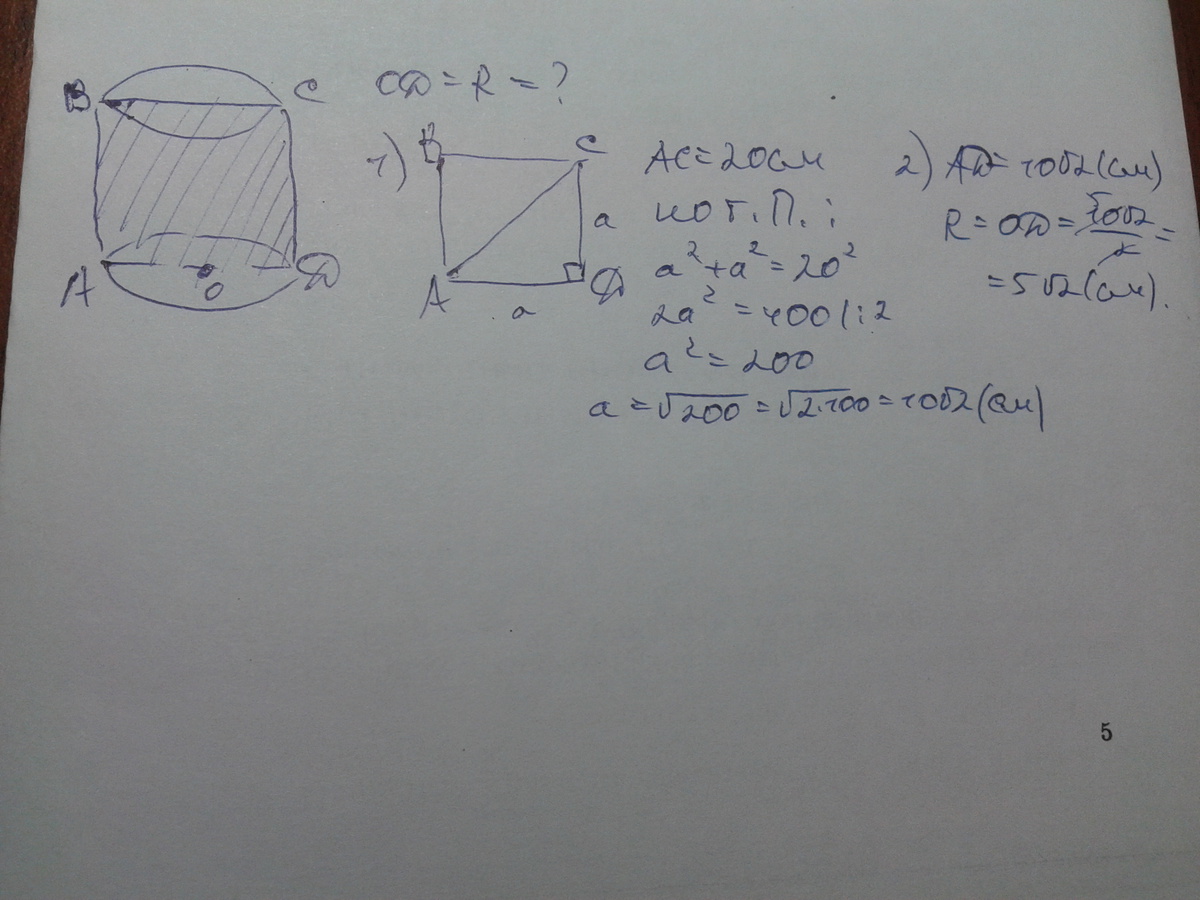 B C
A O D
OD = R = ?
1) B C
A D
a
a
AC = 20 см
по т. П. :
a² + a² = 20²
2a² = 400 | : 2
a² = 200
a = √200 = √2·100 = 10√2 (см)
2) AD = 10√2 (см)
R = OD = 10√2/2 =
= 5√2 (см).
5